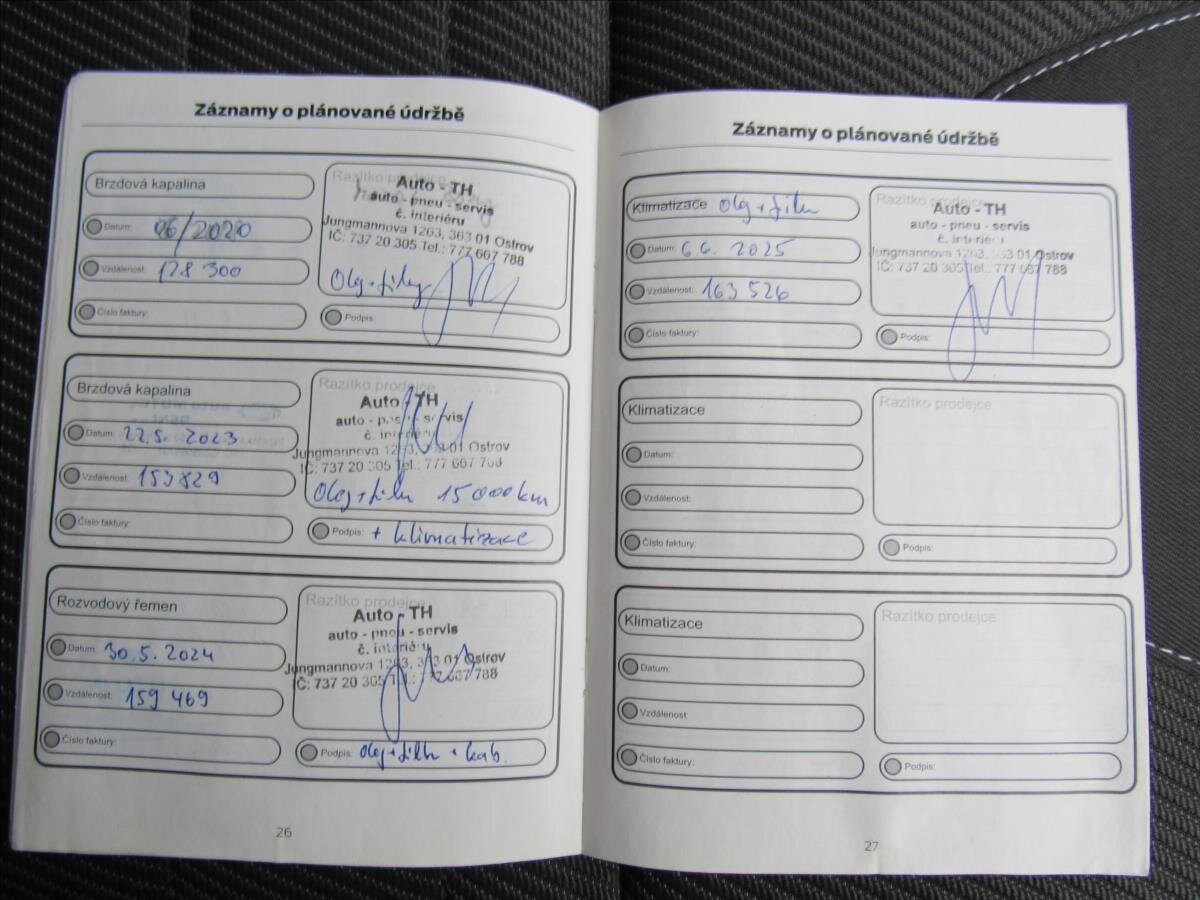 Záznamy o plánované údržbě
Brzdová kapalina
Datum: 06/2020
Vzdálenost: 128 300
Číslo faktury:
Razítko prodejce
Auto - TH
auto - pneu - servis
č. interiéru
Jungmannova 1263, 363 01 Ostrov
IČ: 737 20 305 Tel.: 777 667 788
Olej+filtry
Podpis:
Brzdová kapalina
Datum: 22.5. 2023
Vzdálenost: 153829
Číslo faktury:
Razítko prodejce
Auto - TH
auto - pneu - servis
č. interiéru
Jungmannova 1263, 363 01 Ostrov
IČ: 737 20 305 Tel.: 777 667 788
Olej+filtr 15 000km
Podpis: + klimatizace
Rozvodový řemen
Datum: 30.5. 2024
Vzdálenost: 159 469
Číslo faktury:
Razítko prodejce
Auto - TH
auto - pneu - servis
č. interiéru
Jungmannova 1263, 363 01 Ostrov
IČ: 737 20 305 Tel.: 777 667 788
Podpis: olej+filtr + kab.
26
Záznamy o plánované údržbě
Klimatizace olej+filtr
Datum: 6.6. 2025
Vzdálenost: 163 526
Číslo faktury:
Razítko prodejce
Auto - TH
auto - pneu - servis
č. interiéru
Jungmannova 1263, 363 01 Ostrov
IČ: 737 20 305 Tel.: 777 667 788
Podpis:
Klimatizace
Datum:
Vzdálenost:
Číslo faktury:
Razítko prodejce
Podpis:
Klimatizace
Datum:
Vzdálenost:
Číslo faktury:
Razítko prodejce
Podpis:
27